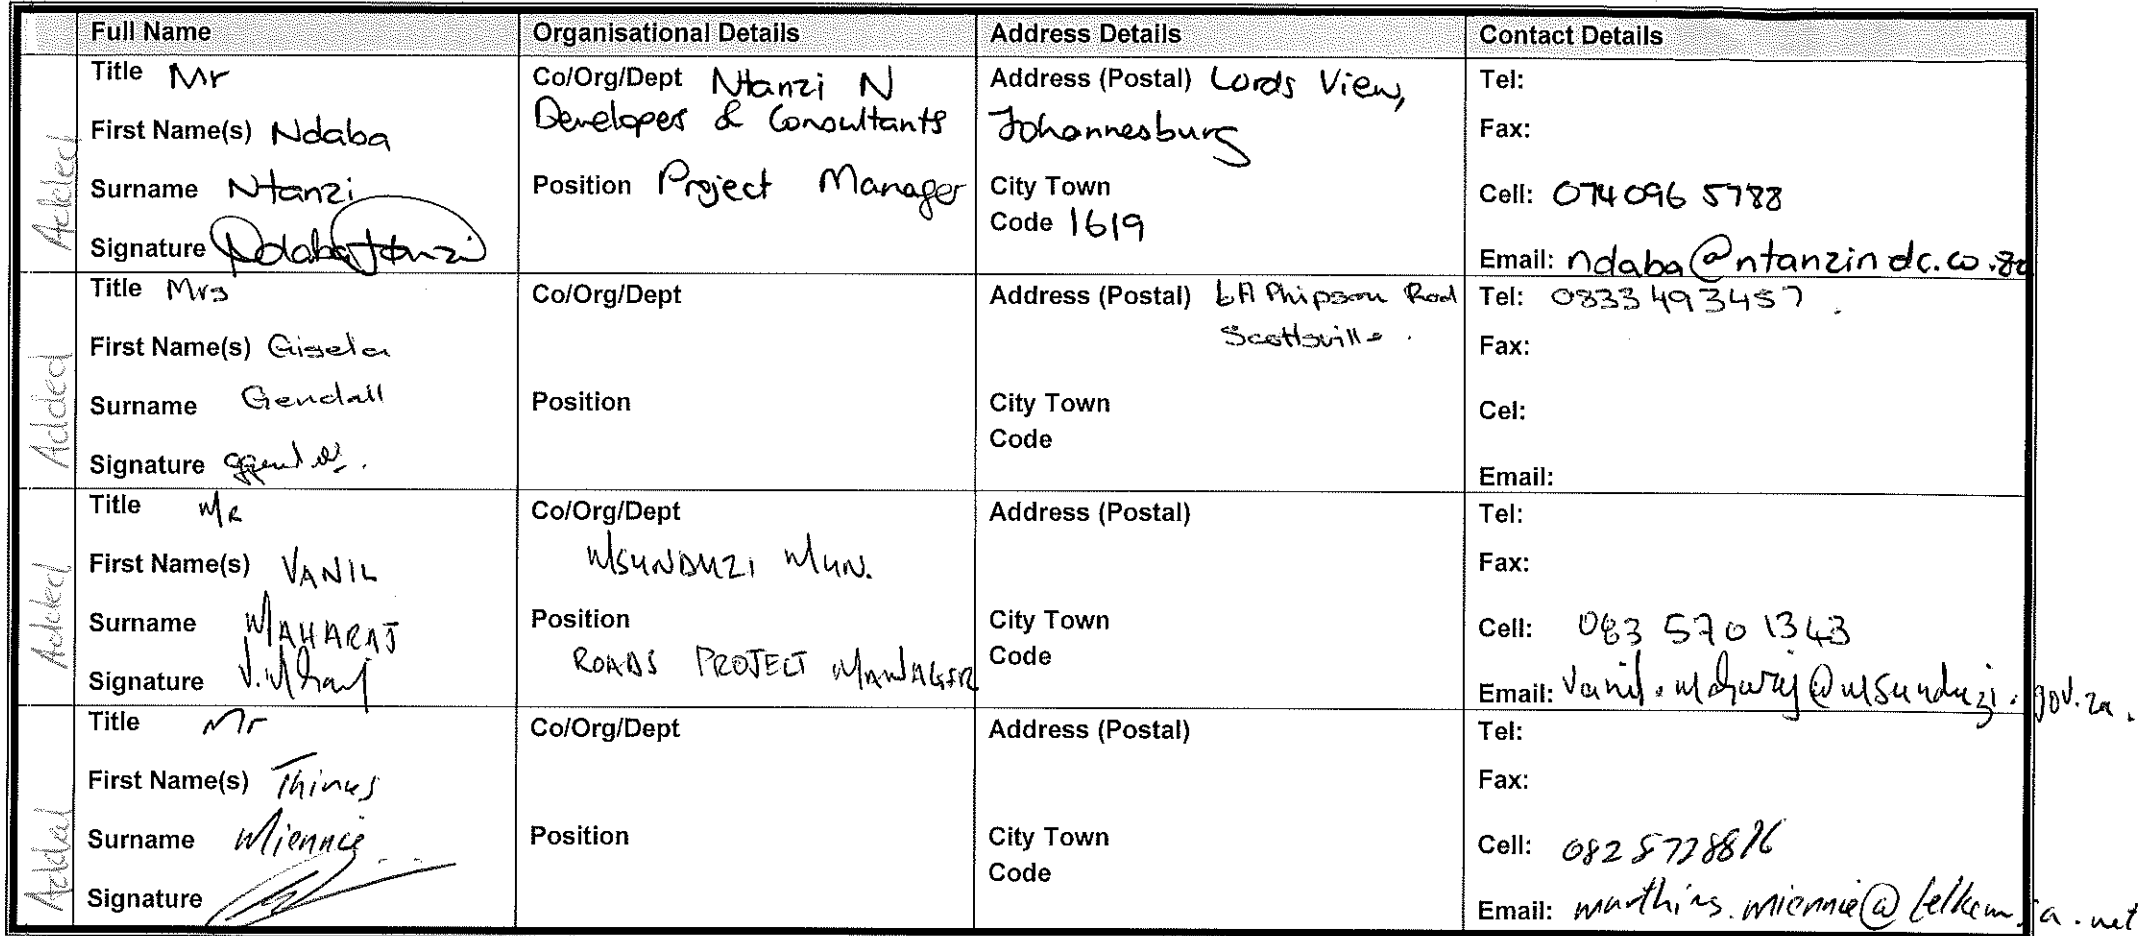 Full Name Organisational Details Address Details Contact Details
Added
Title Mr
First Name(s) Ndaba
Surname Ntanzi
Signature Ndaba Ntanzi
Co/Org/Dept Ntanzi N
Developers & Consultants
Position Project Manager
Address (Postal) Lords View,
Johannesburg
City Town
Code 1619
Tel:
Fax:
Cell: 074 096 5788
Email: ndaba@ntanzindc.co.za
Added
Title Mrs
First Name(s) Gisela
Surname Gendall
Signature
Co/Org/Dept
Position
Address (Postal) 6A Phipson Road
Scottsville.
City Town
Code
Tel: 0833493457.
Fax:
Cel:
Email:
Added
Title MR
First Name(s) VANIL
Surname MAHARAJ
Signature
Co/Org/Dept
MSUNDUZI MUN.
Position
ROADS PROJECT MANAGER
Address (Postal)
City Town
Code
Tel:
Fax:
Cell: 083 570 1343
Email: Vanil.maharaj@msunduzi.gov.za.
Added
Title Mr
First Name(s) Thinus
Surname Miennie
Signature
Co/Org/Dept
Position
Address (Postal)
City Town
Code
Tel:
Fax:
Cell:
Email: